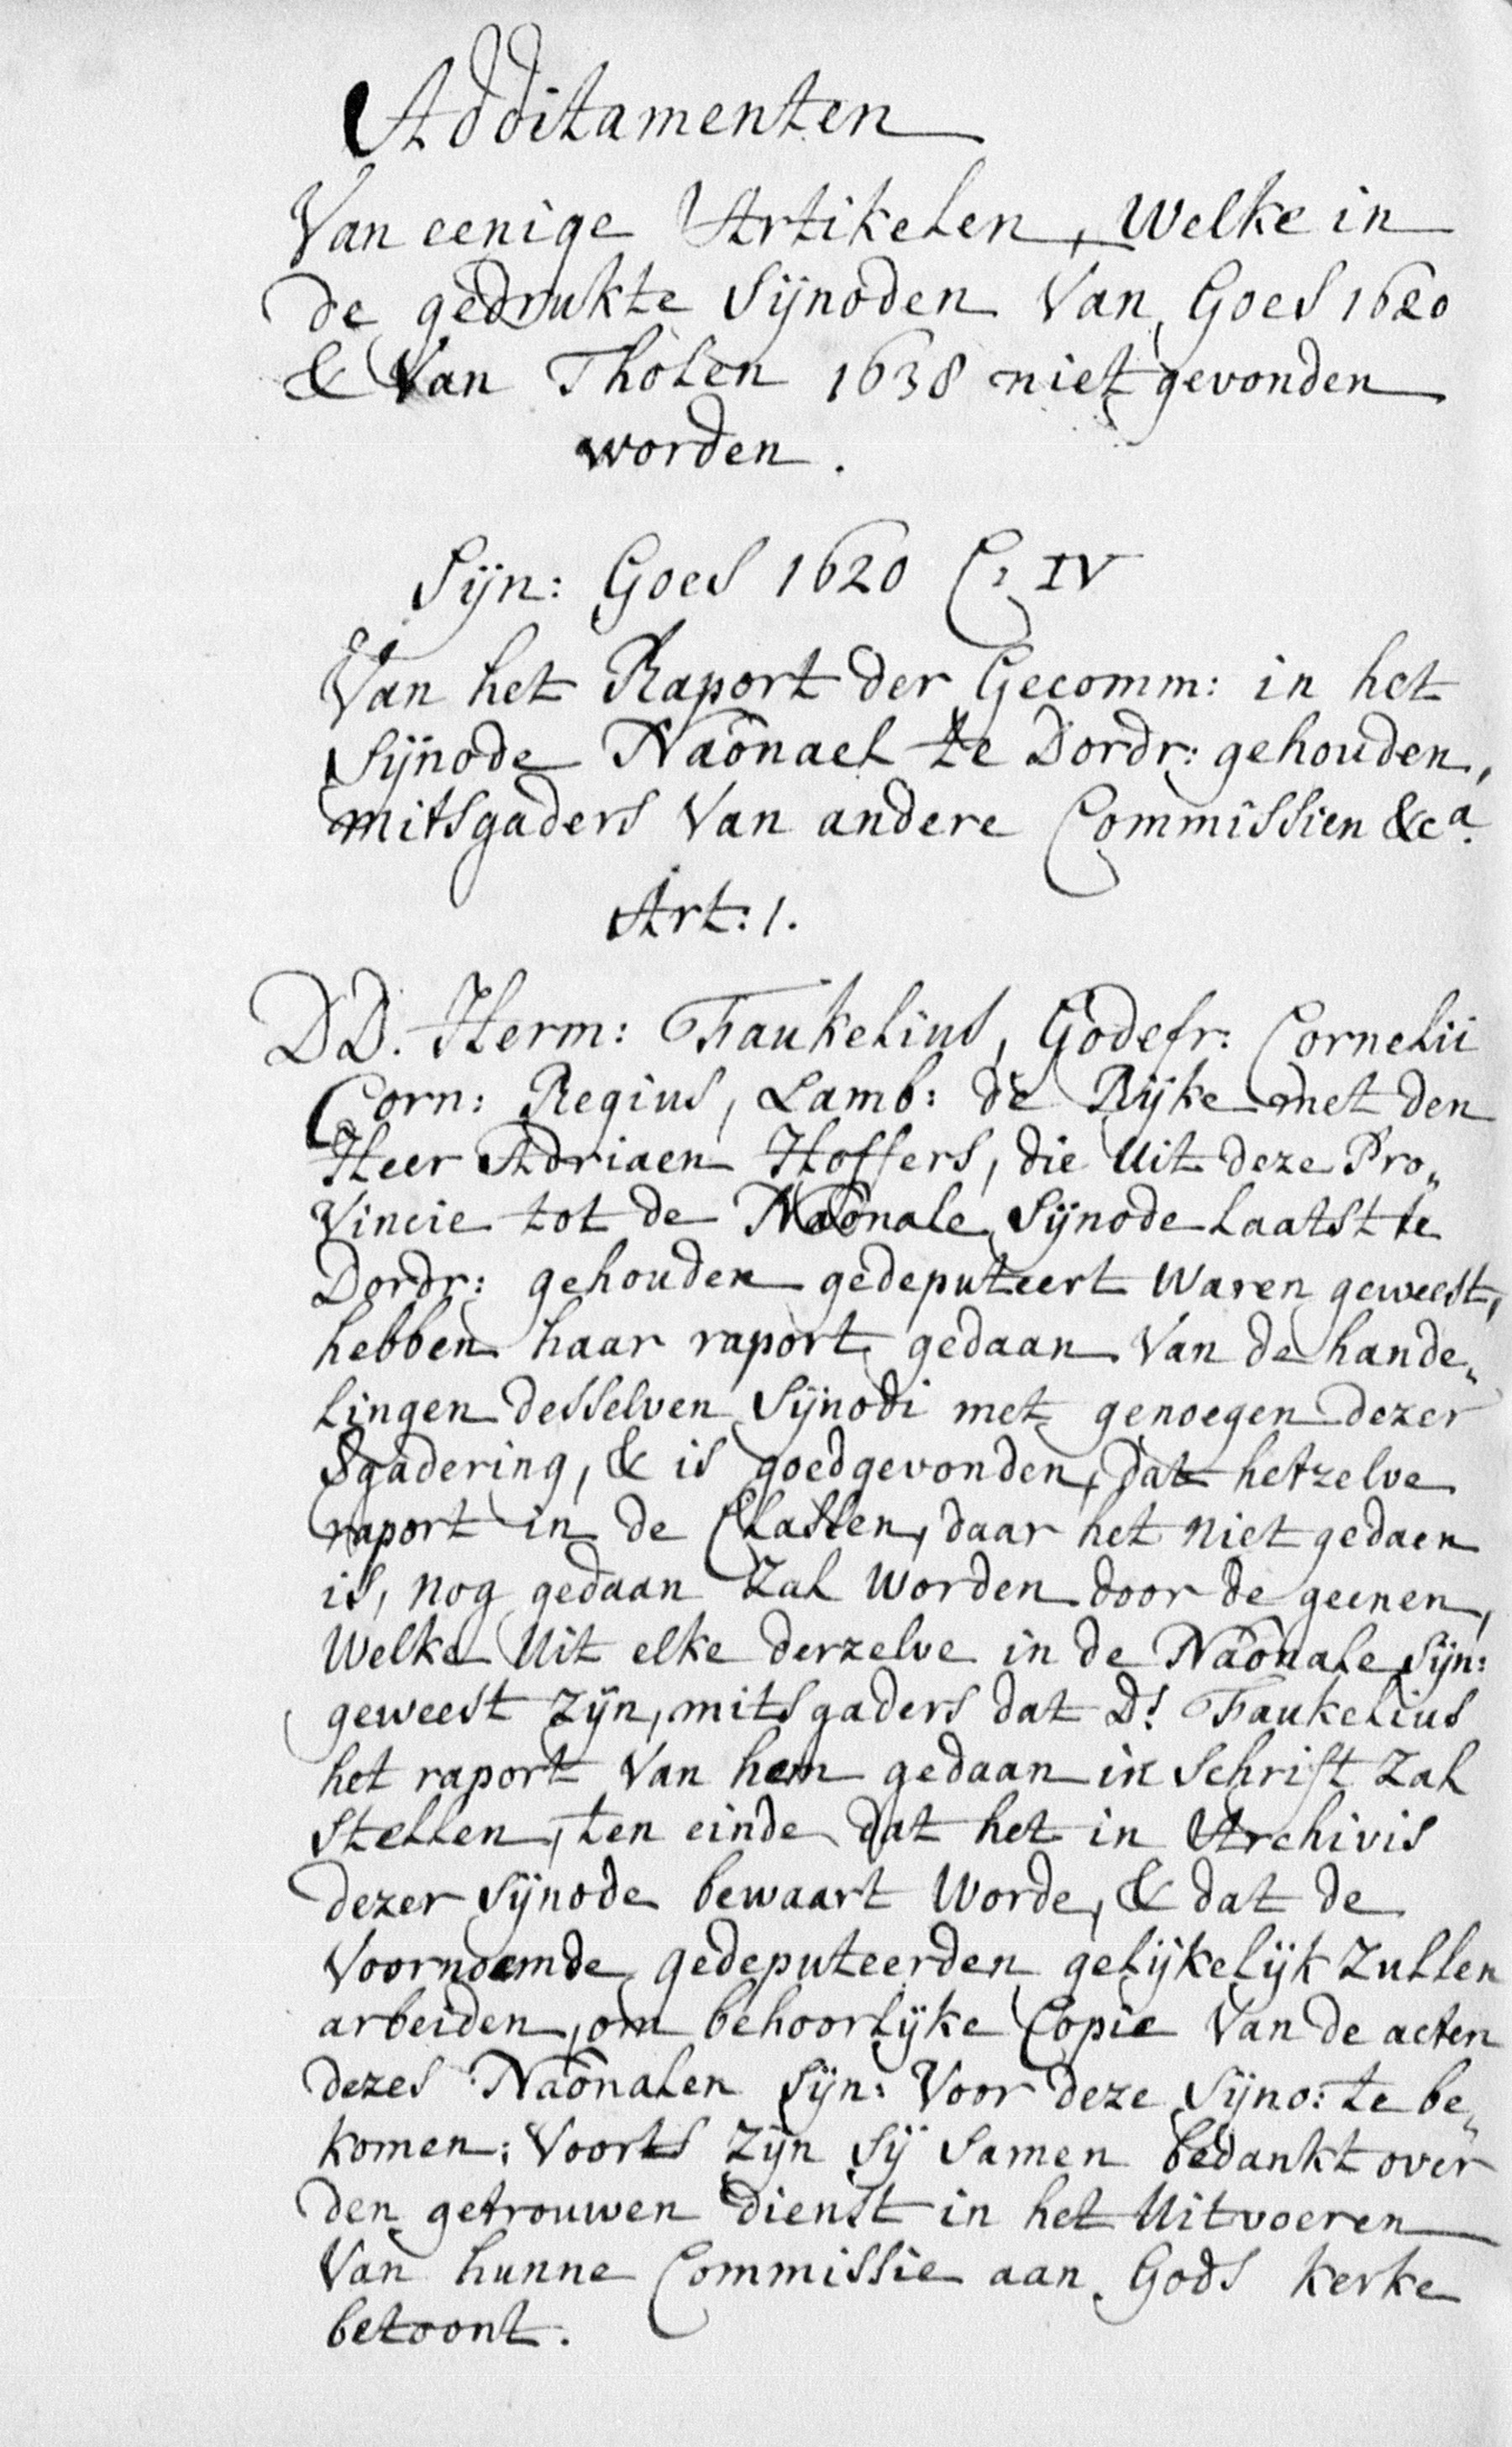 Additamenten
Van eenige Artikelen, Welke in
de gedrukte Sijnoden Van Goes 1620
& Van Tholen 1638 niet gevonden
worden.
Sijn: Goes 1620 C: IV
Van het Raport der Gecomm: in het
Sijnode Naõnael te Dordr: gehouden,
mitsgaders Van andere Commissien &cª.
Art: 1.
DD. Herm: Faukelius, Godefr: Cornelii
Corn: Regius, Lamb: de Rijke met den
Heer Adriaen Hoffers, die Uit deze Pro„
Vincie tot de Naõnale Sijnode laatst te
Dordr: gehouden gedeputeert Waren geweest,
hebben haar raport gedaan Van de hande„
lingen desselven Sijnodi met genoegen dezer
Vgadering, & is goedgevonden, dat hetzelve
raport in de Classen, daar het niet gedaen
is, nog gedaan Zal Worden door de geenen,
Welke Uit elke derzelve in de Naõnale Sijn:
geweest zijn, mitsgaders dat Ds. Faukelius
het raport Van hem gedaan in Schrift Zal
Stellen, ten einde dat het in Archivis
dezer Sijnode bewaart Worde, & dat de
Voornoemde gedeputeerden gelijkelijk Zullen
arbeiden, om behoorlijke Copie Van de acten
dezes Naõnalen Sijn: Voor deze Sijno: te be„
komen: Voorts Zijn Sij Samen bedankt over
den getrouwen dienst in het Uitvoeren
Van hunne Commissie aan Gods kerke
betoont.